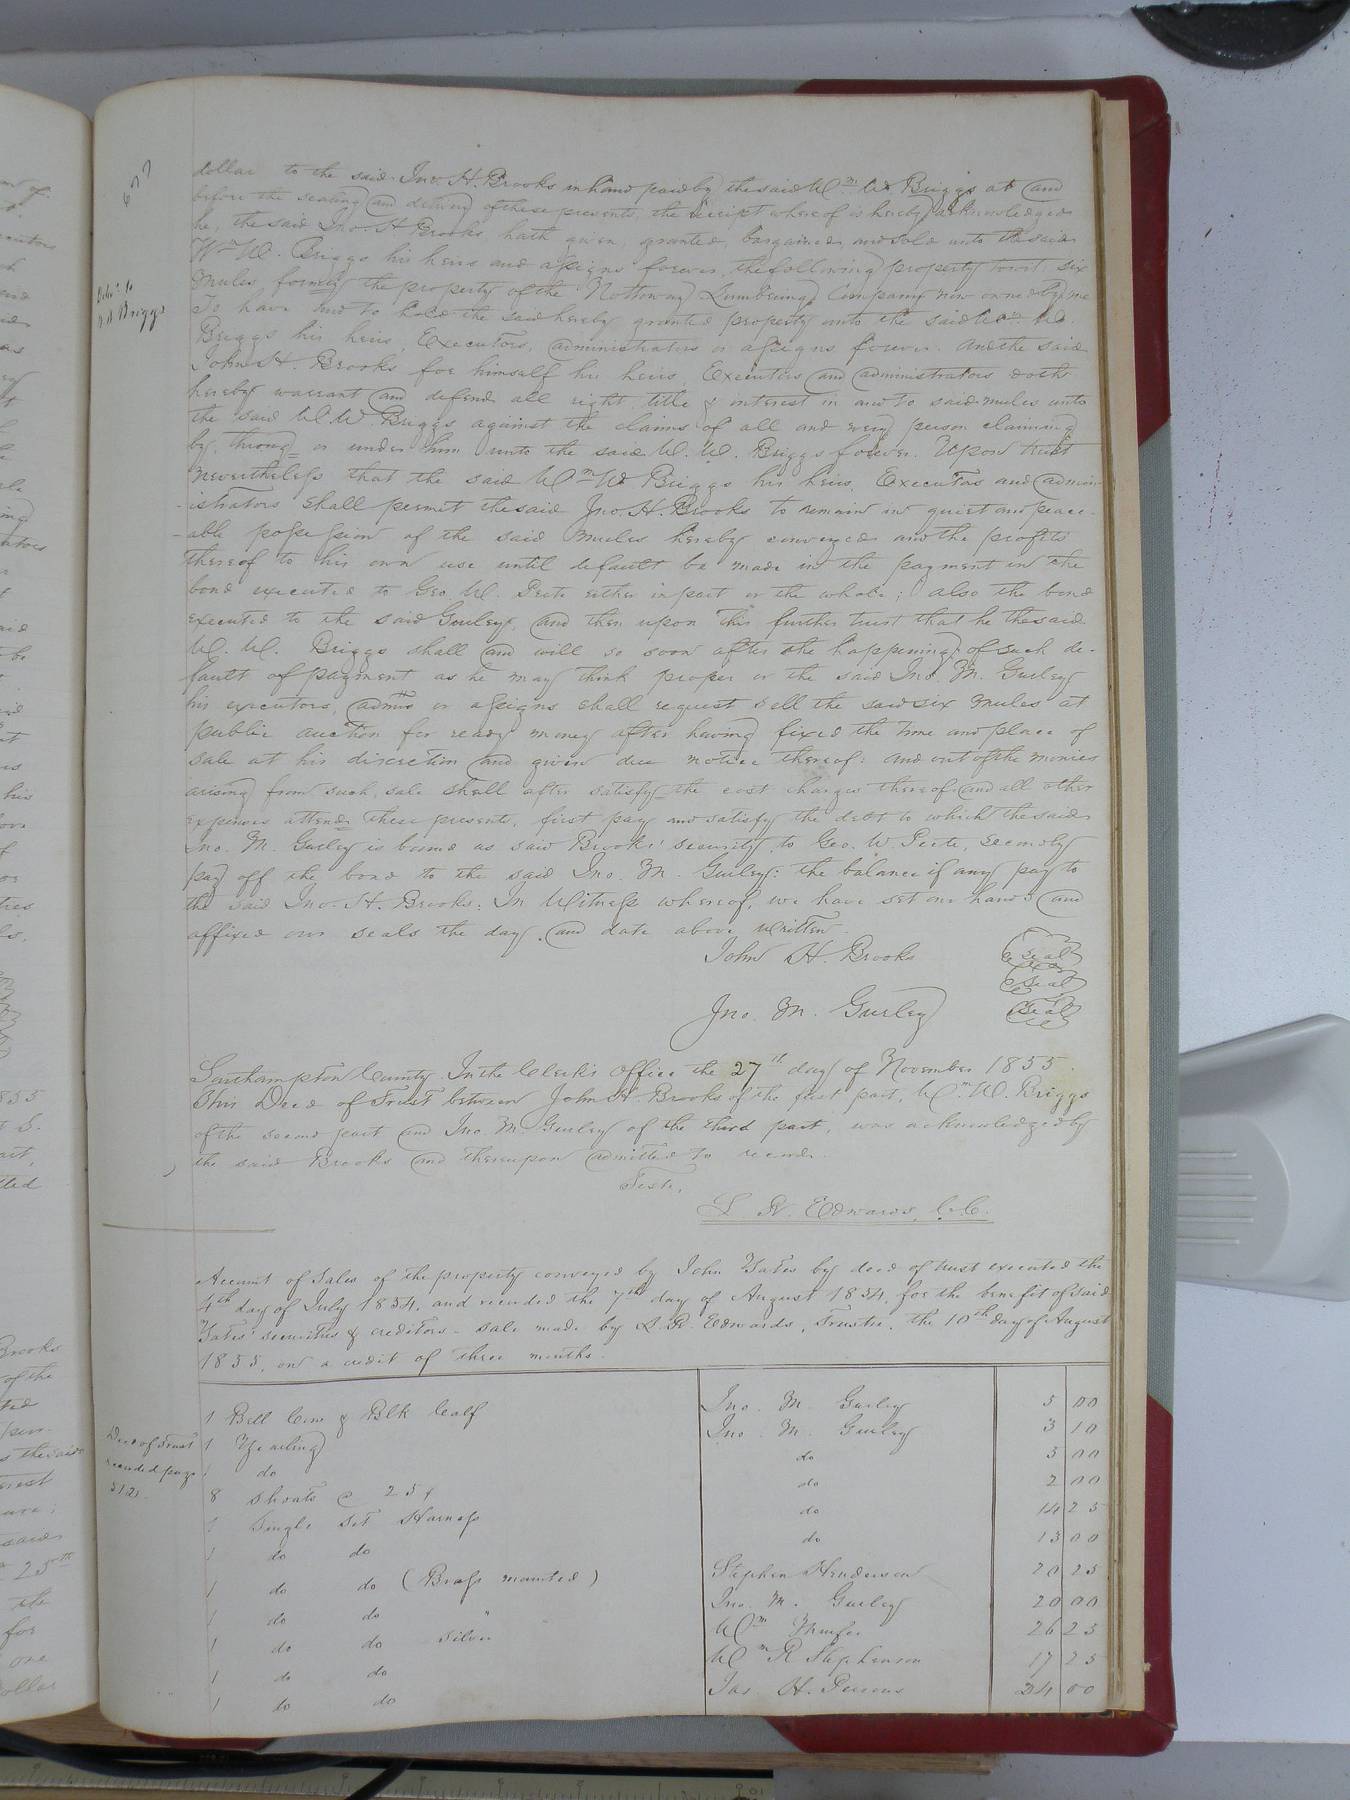 677
dollar to the said Jno. H. Brooks in hand paid by the said Wm W. Briggs at and
before the sealing and delivery of these presents, the receipt whereof is hereby acknowledged
he, the said Jno. H Brooks hath given, granted, bargained and sold unto the said
Wm W. Briggs his heirs and assigns forever, the following property towit: six
mules formerly the property of the Nottoway Lumbering Company now owned by me
To have and to hold the said hereby granted property unto the said Wm W.
Briggs his heirs, Executors, administrators or assigns forever. And the said
John H. Brooks for himself his heirs, Executors and administrators doth
hereby warrant and defend all right, title & interest in and to said mules unto
the said W. W. Briggs against the claims of all and every person claiming
by, through or under him unto the said W. W. Briggs forever. Upon trust
nevertheless that the said Wm W Briggs his heirs, Executors and admin-
-istrators shall permit the said Jno. H. Brooks to remain in quiet and peace-
-able possession of the said mules hereby conveyed and the profits
thereof to his own use until default be made in the payment in the
bond executed to Geo. W. Peete either in part or the whole; also the bond
executed to the said Gurley, and then upon this further trust that he the said
W. W. Briggs shall and will so soon after the happening of such de-
fault of payment as he may think proper or the said Jno. M. Gurley
his executors, admrs or assigns shall request sell the said six mules at
public auction for ready money after having fixed the time and place of
sale at his discretion and given due notice thereof: and out of the monies
arising from such sale shall after satisfyg the cost charges thereof and all other
expenses attendg these presents, first pay and satisfy the debt to which the said
Jno. M. Gurley is bound as said Brooks' security to Geo. W Peete, secondly
pay off the bond to the said Jno. M. Gurley: the balance if any pay to
the said Jno. H. Brooks: In Witness whereof, we have set our hands and
affixed our seals the day and date above written.
John H. Brooks Seal
Seal
Jno. M. Gurley Seal
Southampton County. In the Clerk's Office the 27th day of November 1855
This Deed of Trust between John H. Brooks of the first part, Wm. W. Briggs
of the second part and Jno. M. Gurley of the third part, was acknowledged by
the said Brooks and thereupon admitted to record.
Teste,
L R. Edwards, C.C.
Account of Sales of the property conveyed by John Yates by deed of trust executed the
4th day of July 1854, and recorded the 7th day of August 1854, for the benefit of said
Yates' securities & creditors - sale made by L. R. Edwards, Trustee, the 10th day of August
1855, on a credit of three months.
Deed of Trust
recorded page
512
1 Bell Cow & Blk Calf Jno. M. Gurley 5 00
1 Yearling Jno. M. Gurley 3 10
1 do do 5 00
8 Shoats @ 25¢ do 2 00
1 Single Set Harness do 14 25
1 do do do 13 00
1 do do (Brass mounted) Stephen Henderson 20 25
1 do do " Jno. M. Gurley 20 00
1 do do Silver Wm 26 25
1 do do Wm R Stephenson 17 25
1 do do Jas H. 24 00